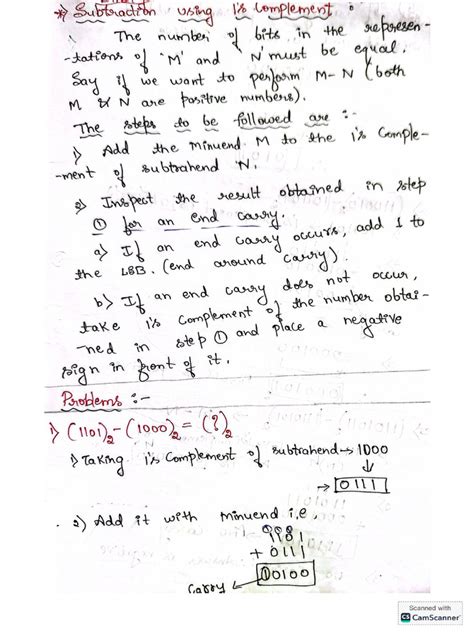 *) Subtraction using 1's Complement :
The number of bits in the represen-
-tations of 'M' and 'N' must be equal.
Say if we want to perform M-N (both
M & N are positive numbers).
The steps to be followed are :-
1) Add the minuend M to the 1's Comple-
-ment of subtrahend N.
2) Inspect the result obtained in step
① for an end carry.
a) If an end carry occurs, add 1 to
the LSB. (end around carry).
b) If an end carry does not occur,
take 1's Complement of the number obtai-
-ned in step ① and place a negative
sign in front of it.
Problems :-
1) (1101)₂ - (1000)₂ = (?)₂
1) Taking 1's Complement of subtrahend → 1000
↓
→ 0111
2) Add it with Minuend i.e,
1101
+ 0111
Carry ← 10100
Scanned with
CS CamScanner